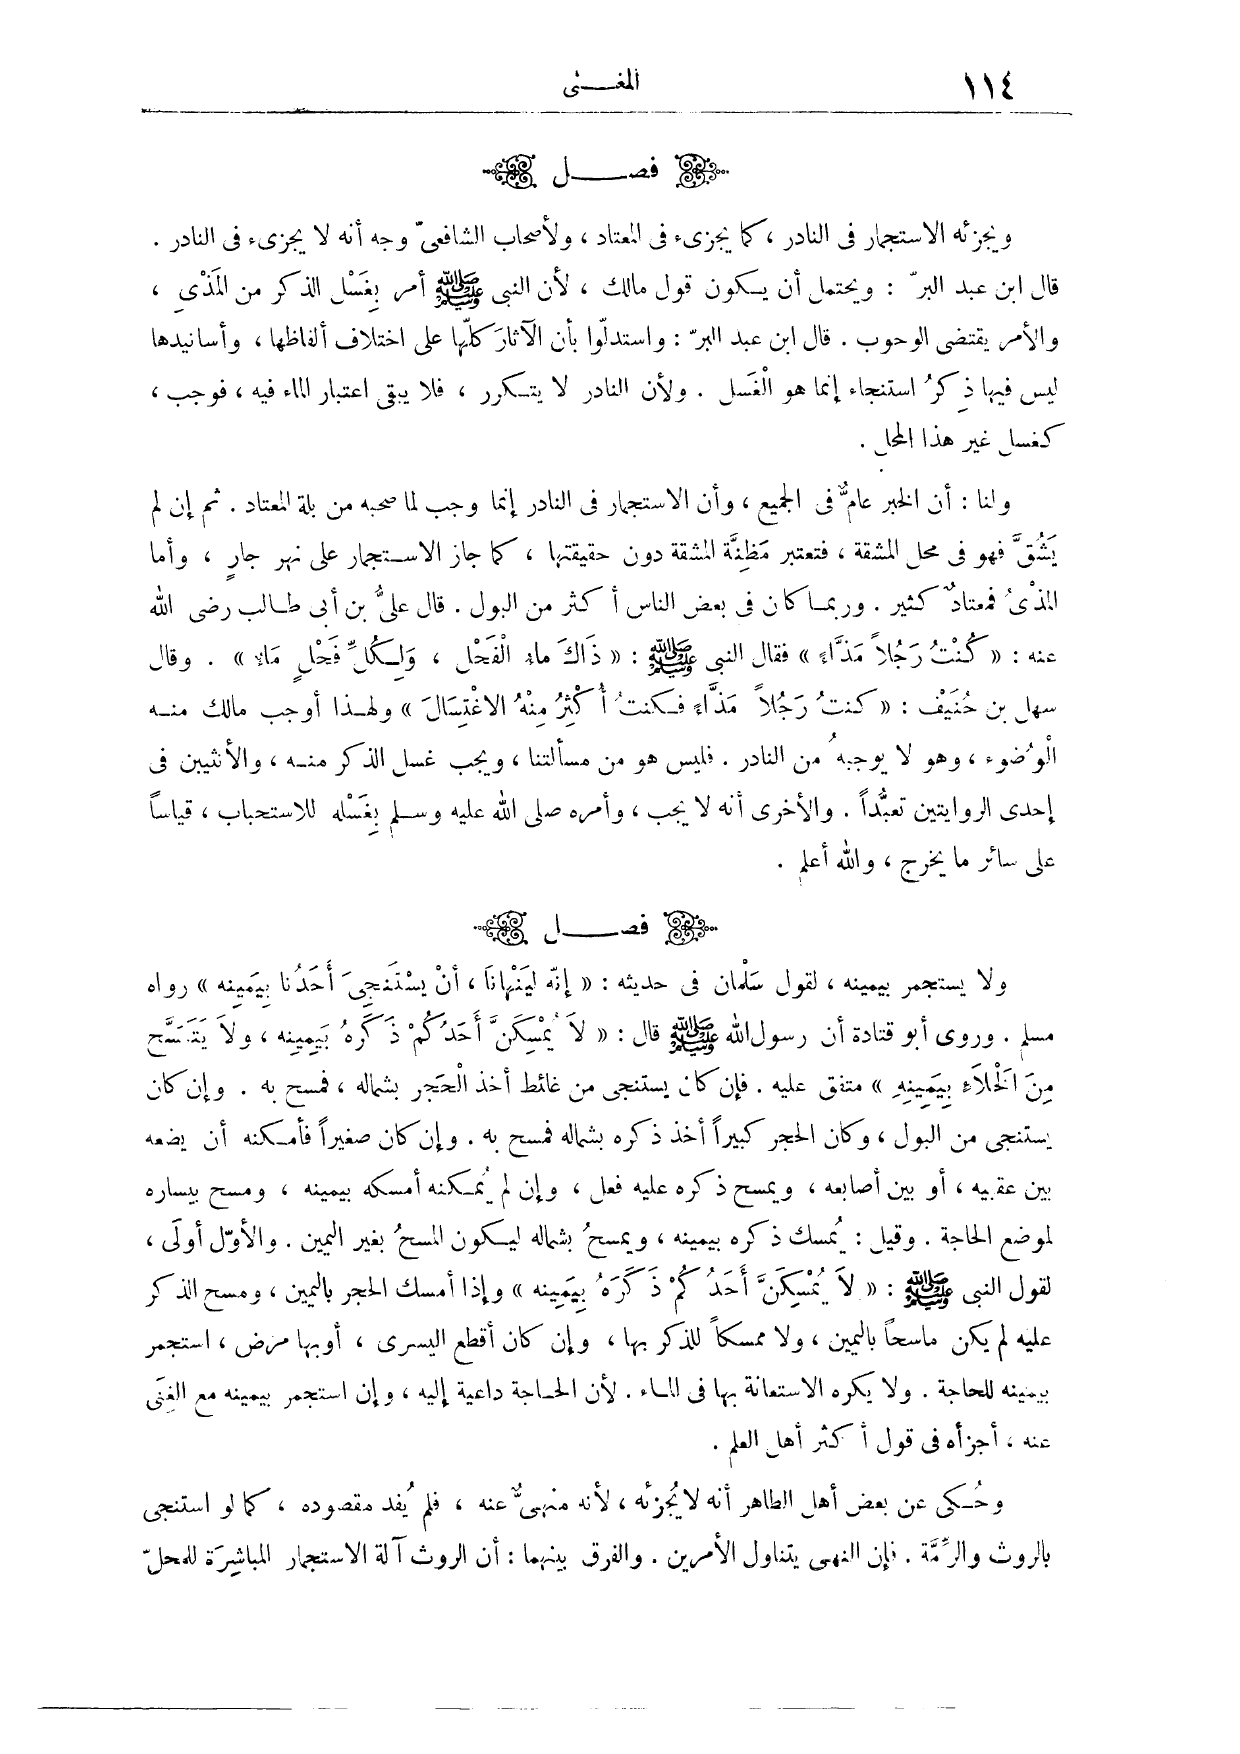 ١١٤
المغنى
فصل
ويجزئه الاستجمار فى النادر ، كما يجزىء فى المعتاد ، ولأصحاب الشافعىّ وجه أنه لا يجزىء فى النادر .
قال ابن عبد البرّ : ويحتمل أن يكون قول مالك ، لأن النبى ﷺ أمر بِغَسْل الذكر من المَذْىِ ،
والأمر يقتضى الوجوب . قال ابن عبد البرّ : واستدلّوا بأن الآثارَ كلّها على اختلاف ألفاظها ، وأسانيدها
ليس فيها ذِكرُ استنجاء إنما هو الْغَسل . ولأن النادر لا يتكرر ، فلا يبقى اعتبار الماء فيه ، فوجب ،
كغسل غير هذا المحل .
ولنا : أن الخبر عامٌّ فى الجميع ، وأن الاستجمار فى النادر إنما وجب لما صحبه من بلة المعتاد . ثم إن لم
يَشُقَّ فهو فى محل المشقة ، فتعتبر مَظِنَّة المشقة دون حقيقتها ، كما جاز الاستجمار على نهر جارٍ ، وأما
المذْىُ فمعتادٌ كثير . وربما كان فى بعض الناس أكثر من البول . قال علىُّ بن أبى طالب رضى الله
عنه : « كُنْتُ رَجُلاً مَذَّاءً » فقال النبى ﷺ : « ذَاكَ ماءُ الْفَحْل ، وَلِكُلِّ فَحْلٍ مَاءٌ » . وقال
سهل بن حُنَيْف : « كنتُ رَجُلاً مَذَّاءً فكنتُ أُكْثِرُ مِنْهُ الاغْتِسَالَ » ولهذا أوجب مالك منه
الْوُضوء ، وهو لا يوجبهُ من النادر . فليس هو من مسألتنا ، ويجب غسل الذكر منه ، والأنثيين فى
إحدى الروايتين تعبُّداً . والأخرى أنه لا يجب ، وأمره صلى الله عليه وسلم بِغَسْله للاستحباب ، قياساً
على سائر ما يخرج ، والله أعلم .
فصل
ولا يستجمر بيمينه ، لقول سَلْمان فى حديثه : « إنّه ليَنْهانَا ، أنْ يسْتَنجِىَ أَحَدُنا بِيَمِينه » رواه
مسلم . وروى أبو قتادة أن رسول الله ﷺ قال : « لاَ يُمْسِكَنَّ أَحَدُكُمْ ذَكَرَهُ بَيمِينِه ، ولاَ يَتَمَسَّح
مِنَ الَخْلاَءِ بِيَمِينِهِ » متفق عليه . فإن كان يستنجى من غائط أخذ الْحَجر بشماله ، فمسح به . وإن كان
يستنجى من البول ، وكان الحجر كبيراً أخذ ذكره بشماله فمسح به . وإن كان صغيراً فأمكنه أن يضعه
بين عقبيه ، أو بين أصابعه ، ويمسح ذكره عليه فعل ، وإن لم يُمكنه أمسكه بيمينه ، ومسح بيساره
لموضع الحاجة . وقيل : يُمسك ذكره بيمينه ، ويمسحُ بشماله ليكون المسحُ بغير اليمين . والأوّل أولَى ،
لقول النبى ﷺ : « لاَ يُمْسِكَنَّ أَحَدُكُمْ ذَكَرَهُ بِيَمِينه » وإذا أمسك الحجر باليمين ، ومسح الذكر
عليه لم يكن ماسحاً باليمين ، ولا ممسكاً للذكر بها ، وإن كان أقطع اليسرى ، أوبها مرض ، استجمر
بيمينه للحاجة . ولا يكره الاستعانة بها فى الماء . لأن الحاجة داعية إليه ، وإن استجمر بيمينه مع الغِنَى
عنه ، أجزأه فى قول أكثر أهل العلم .
وحُكى عن بعض أهل الظاهر أنه لا يُجزئه ، لأنه منهىٌّ عنه ، فلم يُفد مقصوده ، كما لو استنجى
بالروث والرِّمَّة . فإن النهى يتناول الأمرين . والفرق بينهما : أن الروث آلة الاستجمار المباشِرَة للمحلّ